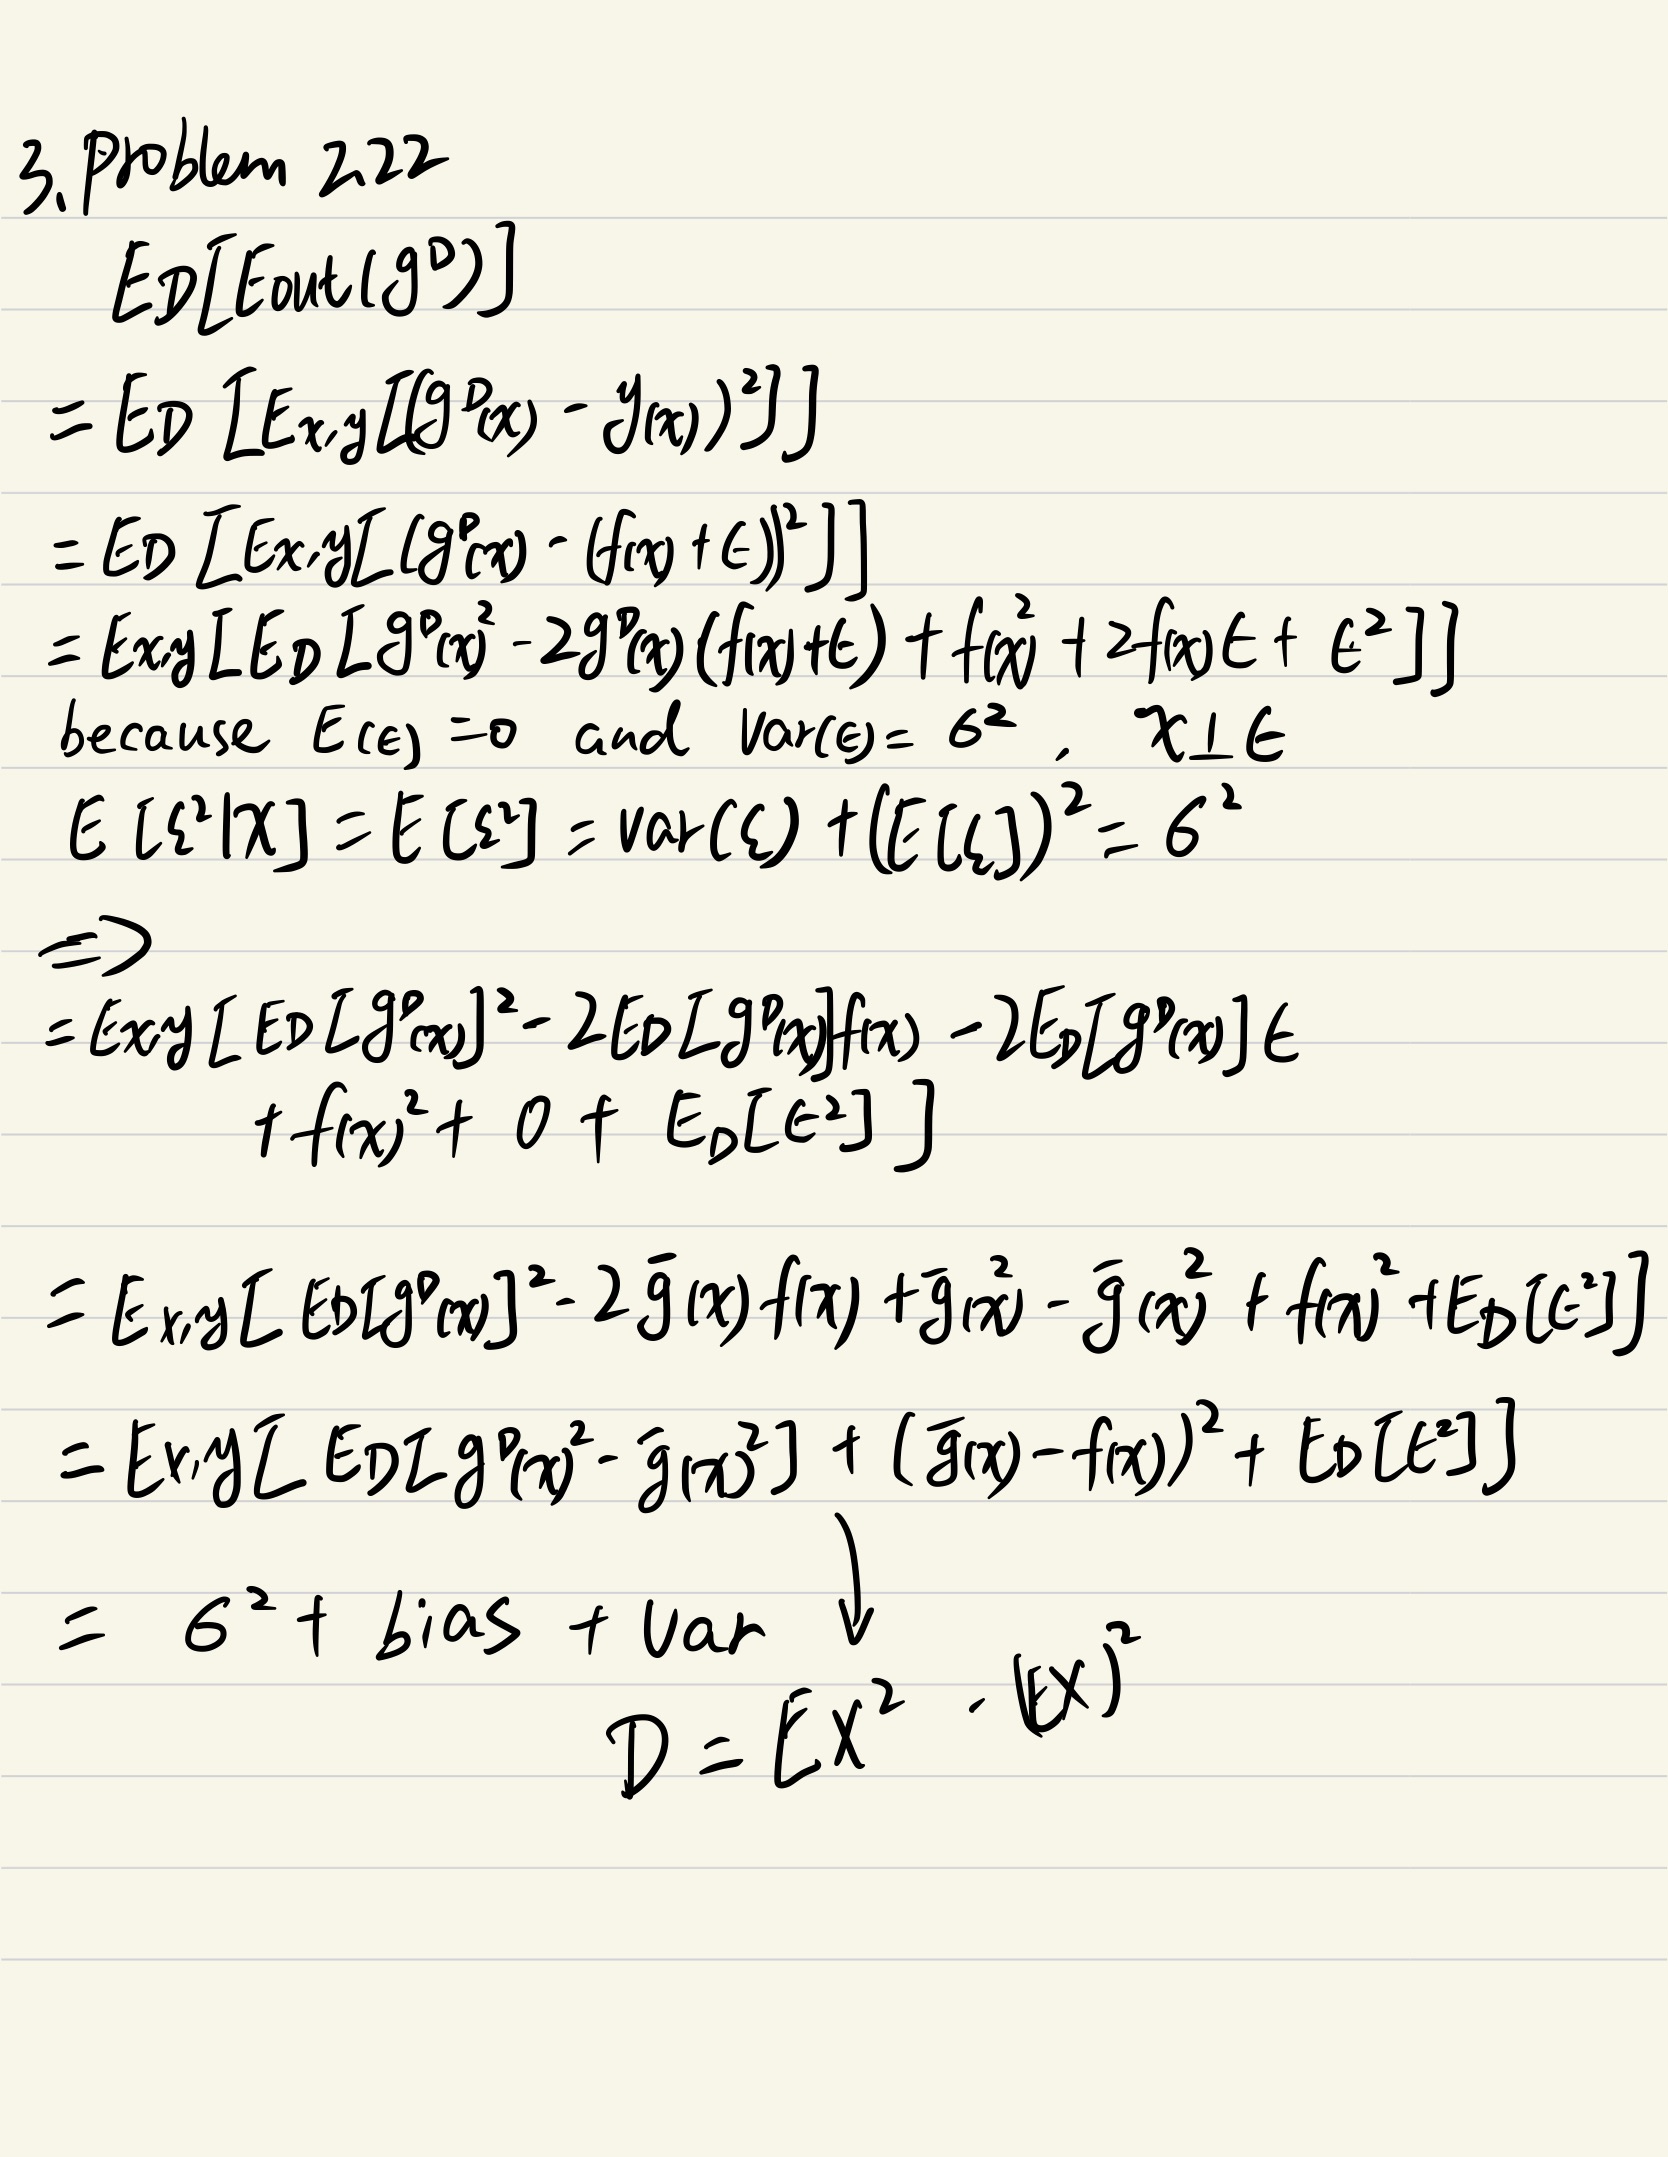 3. Problem 2.22
ED[Eout(g^D)]
= ED [Ex,y[(g^D(x) - y(x))^2]]
= ED [Ex,y[(g^D(x) - (f(x) + ϵ))^2]]
= Ex,y[ED[g^D(x)^2 - 2g^D(x)(f(x)+ϵ) + f(x)^2 + 2f(x)ϵ + ϵ^2]]
because E(ϵ) = 0 and Var(ϵ) = 6^2, x⊥ϵ
E[ξ^2|X] = E[ξ^2] = Var(ξ) + (E[ξ])^2 = 6^2
=>
= Ex,y[ED[g^D(x)]^2 - 2ED[g^D(x)]f(x) - 2ED[g^D(x)]ϵ
+ f(x)^2 + 0 + ED[ϵ^2]]
= Ex,y[ED[g^D(x)]^2 - 2ḡ(x)f(x) + ḡ(x)^2 - ḡ(x)^2 + f(x)^2 + ED[ϵ^2]]
= Ex,y[ED[g^D(x)^2 - ḡ(x)^2] + (ḡ(x) - f(x))^2 + ED[ϵ^2]]
= 6^2 + bias + Var ↓
D = EX^2 - (EX)^2